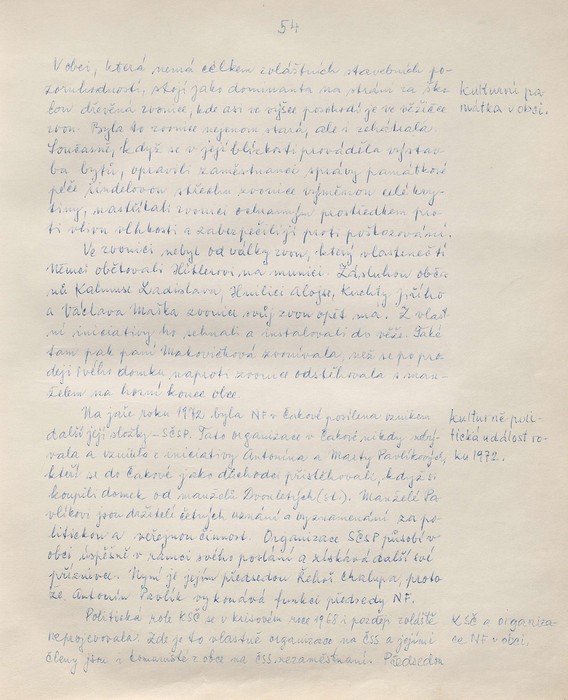 54
V obci, která nemá celkem zvláštních stavebních po-
zoruhodností, stojí jako dominanta na stráni za ško-
lou dřevěná zvonice, kde asi ve výšce poschodí je ve věžičce
zvon. Byla to zvonice nejenom stará, ale i zchátralá.
Současně, když se v její blízkosti prováděla výstav-
ba bytů, opravili zaměstnanci správy památkové
péče šindelovou střechu zvonice výměnou celé kry-
tiny, nastříkali zvonici ochranným prostředkem pro-
ti vlivu vlhkosti a zabezpečili ji proti poškozování.
kulturní pa-
mátka v obci.
Ve zvonici nebyl od války zvon, který vlastenečtí
Němci obětovali Hitlerovi na munici. Zásluhou obča-
nů Kalmuse Ladislava, Hnilici Alojse, Kuchty Jiřího
a Václava Maška zvonice svůj zvon opět má. Z vlast-
ní iniciativy ho sehnali a instalovali do věže. Také
tam pak paní Makovičková zvonívala, než se po pro-
deji svého domku naproti zvonice odstěhovala s man-
želem na horní konec obce.
Na jaře roku 1972 byla NF v Čakové posílena vznikem
další její složky - SČSP. Tato organizace v Čakové nikdy nebý-
vala a vznikla z iniciativy Antonína a Marty Pavlíkových,
kteří se do Čakové jako důchodci přistěhovali, když si
koupili domek od manželů Dvouletých (st.). Manželé Pa-
vlíkovi jsou držiteli četných uznání a vyznamenání za po-
litickou a veřejnou činnost. Organizace SČSP působí v
obci úspěšně v rámci svého poslání a získává další své
příznivce. Nyní je jejím předsedou Řehoř Chalupa, proto-
že Antonín Pavlík vykonává funkci předsedy NF.
kulturně poli-
tická událost ro-
ku 1972.
Politická role KSČ se v krizovém roce 1968 i později zvláště
neprojevovala. Zde je to vlastně organizace na ČSS a jejími
členy jsou i komunisté z obce na ČSS nezaměstnaní. Předsedou
KSČ a organiza-
ce NF v obci.